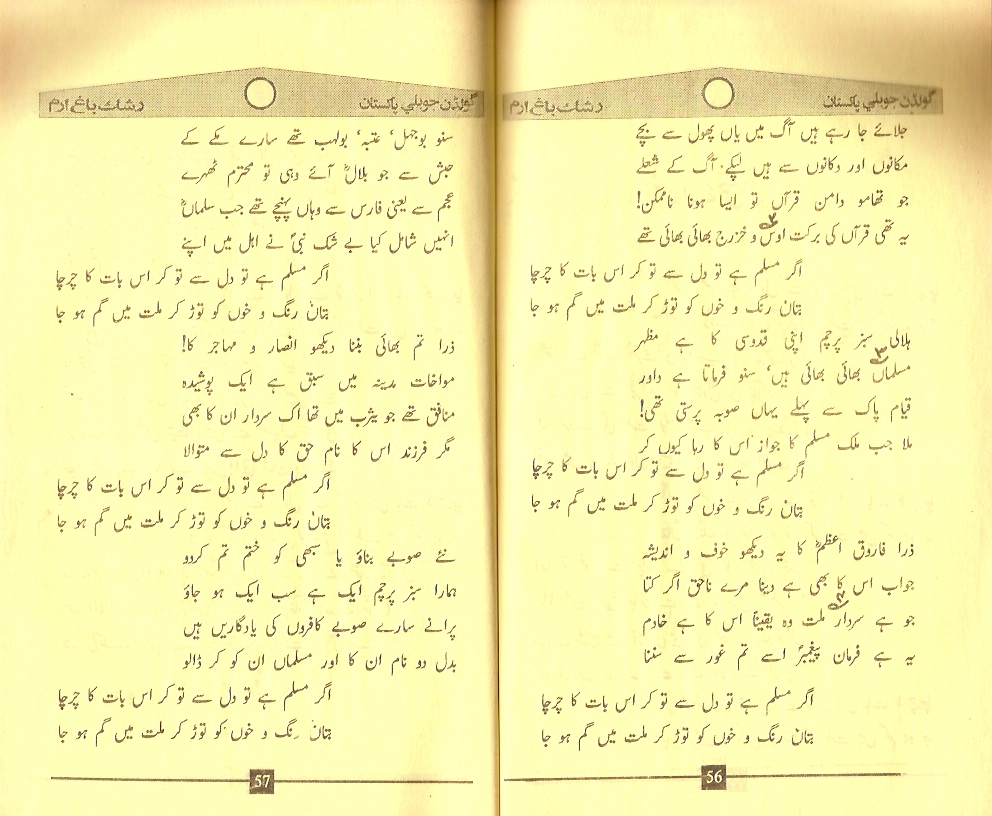 گولڈن جوبلي پاکستان رشک باغ ارم
جلائے جا رہے ہیں آگ میں یاں پھول سے بچے
مکانوں اور دکانوں سے ہیں لپکے آگ کے شعلے
جو تھامو دامن قرآں تو ایسا ہونا ناممکن!
یہ تھی قرآں کی برکت اوس۲ و خزرج بھائی بھائی تھے
اگر مسلم ہے تو دل سے تو کر اس بات کا چرچا
بتان رنگ و خوں کو توڑ کر ملت میں گم ہو جا
ہلالی سبز پرچم اپنی قدوسی کا ہے مظہر
مسلماں۳ بھائی بھائی ہیں‘ سنو فرماتا ہے داور
قیام پاک سے پہلے یہاں صوبہ پرستی تھی!
ملا جب ملک مسلم کا جواز اس کا رہا کیوں کر
اگر مسلم ہے تو دل سے تو کر اس بات کا چرچا
بتان رنگ و خوں کو توڑ کر ملت میں گم ہو جا
ذرا فاروق اعظمؓ کا یہ دیکھو خوف و اندیشہ
جواب اس کا بھی ہے دینا مرے ناحق اگر کتا
جو ہے سردار۴ ملت وہ یقیناً اس کا ہے خادم
یہ ہے فرمان پیغمبرؐ اسے تم غور سے سننا
اگر مسلم ہے تو دل سے تو کر اس بات کا چرچا
بتان رنگ و خوں کو توڑ کر ملت میں گم ہو جا
56
گولڈن جوبلي پاکستان رشک باغ ارم
سنو بوجہل‘ عتبہ‘ بولہب تھے سارے مکے کے
حبش سے جو بلالؓ آئے وہی تو محترم ٹھہرے
عجم سے یعنی فارس سے وہاں پہنچے تھے جب سلماںؓ
انہیں شامل کیا بے شک نبیؐ نے اہل میں اپنے
اگر مسلم ہے تو دل سے تو کر اس بات کا چرچا
بتان رنگ و خوں کو توڑ کر ملت میں گم ہو جا
ذرا تم بھائی بننا دیکھو انصار و مہاجر کا!
مواخات مدینہ میں سبق ہے ایک پوشیدہ
منافق تھے جو یثرب میں تھا اک سردار ان کا بھی
مگر فرزند اس کا نام حق کا دل سے متوالا
اگر مسلم ہے تو دل سے تو کر اس بات کا چرچا
بتان رنگ و خوں کو توڑ کر ملت میں گم ہو جا
نئے صوبے بناؤ یا سبھی کو ختم تم کردو
ہمارا سبز پرچم ایک ہے سب ایک ہو جاؤ
پرانے سارے صوبے کافروں کی یادگاریں ہیں
بدل دو نام ان کا اور مسلماں ان کو کر ڈالو
اگر مسلم ہے تو دل سے تو کر اس بات کا چرچا
بتان رنگ و خوں کو توڑ کر ملت میں گم ہو جا
57